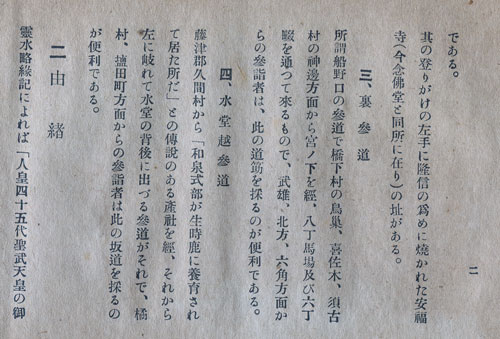 二
である。
其の登りがけの左手に隆信の爲めに燒かれた安福
寺(今念佛堂と同所に在り)の址がある。
三、裏參道
所謂船野口の參道で橋下村の鳥巢、喜佐木、須古
村の神邊方面から宮ノ下を經、八丁馬場及び六丁
畷を通つて來るもので、武雄、北方、六角方面か
らの參詣者は、此の道筋を採るのが便利である。
四、水堂越參道
藤津郡久間村から「和泉式部が生時鹿に養育され
て居た所だ」との傳說のある產社を經、それから
左に岐れて水堂の背後に出づる參道がそれで、橘
村、鹽田町方面からの參詣者は此の坂道を採るの
が便利である。
二由緖
靈水略緣記によれば「人皇四十五代聖武天皇の御